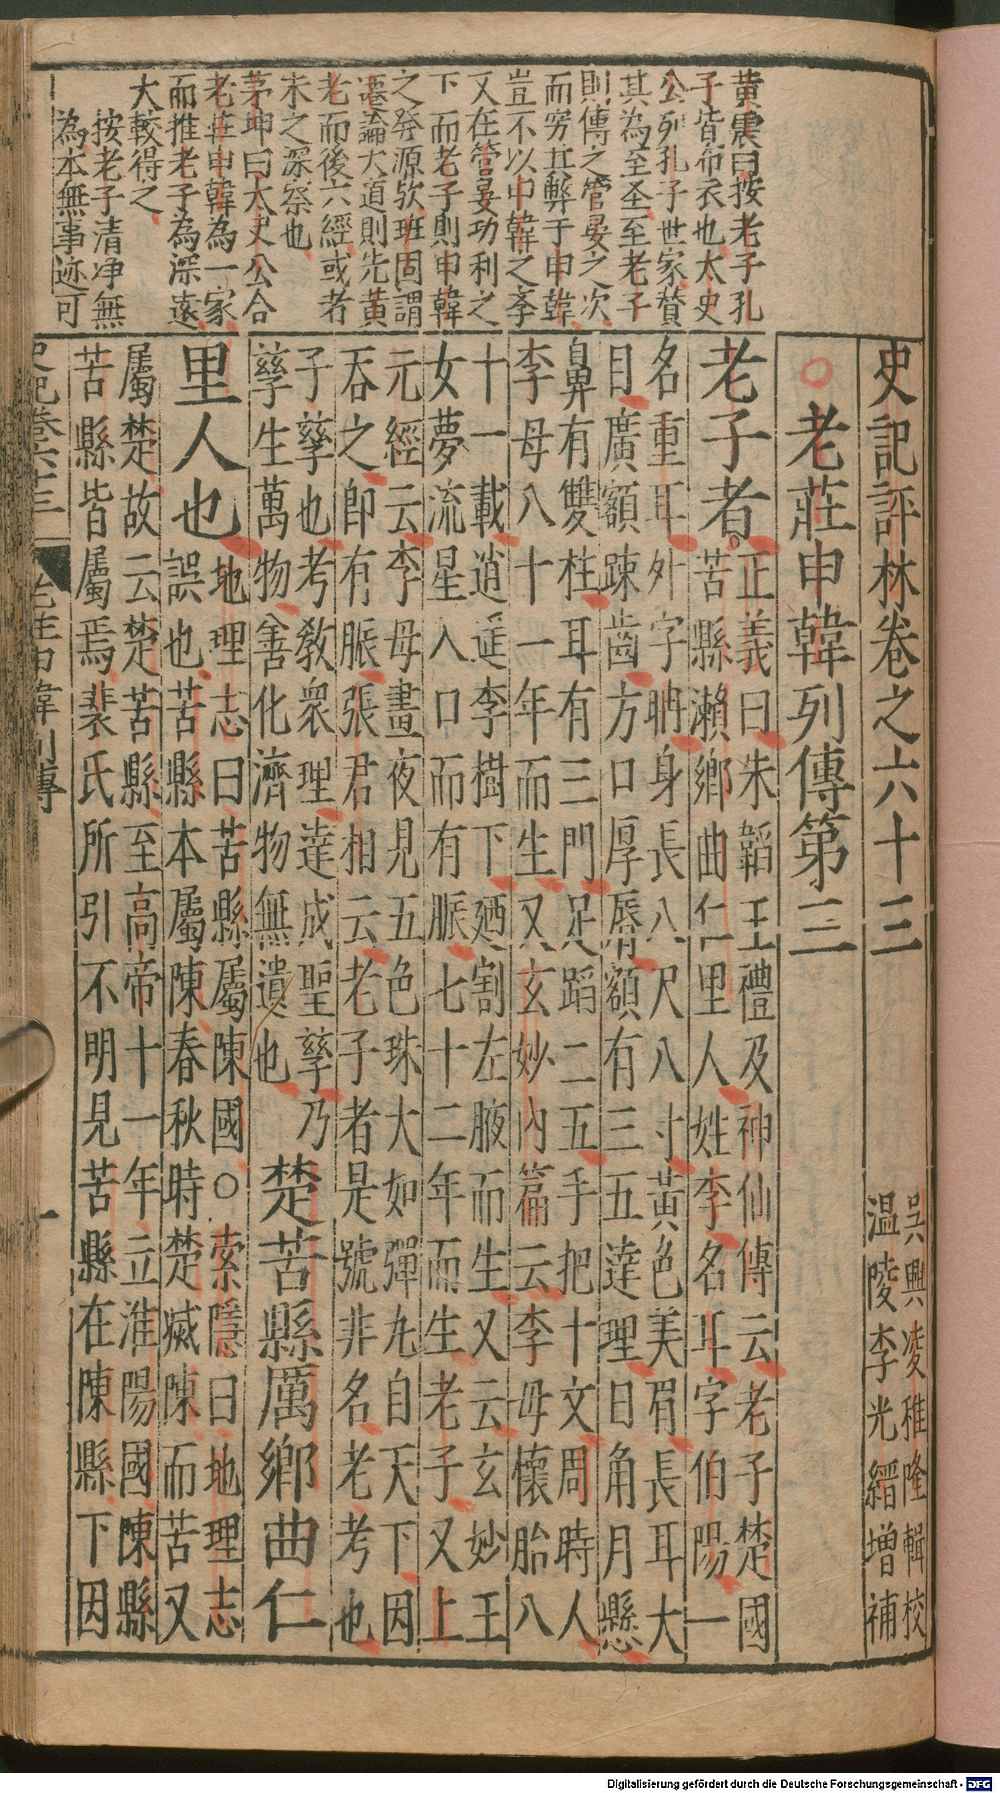 史記評林卷之六十三
吳興凌稚隆輯校
温陵李光縉增補
老莊申韓列傳第三
黃震曰按老子孔
子皆布衣也太史
公列孔子世家贊
其為至圣至老子
則傳之管晏之次
而穷其弊于申韓
豈不以申韓之李
又在管晏功利之
下而老子則申韓
之發源欤班固謂
遷論大道則先黃
老而後六經或者
未之深察也
茅坤曰太史公合
老莊申韓為一家
而推老子為深遠
大較得之
按老子清净無
為本無事迹可
老子者
正義曰朱韜玉禮及神仙傳云老子楚國
苦縣瀨鄉曲仁里人姓李名耳字伯陽一
名重耳外字聃身長八尺八寸黃色美眉長耳大
目廣額踈齒方口厚脣額有三五達理日角月懸
鼻有雙柱耳有三門足蹈二五手把十文周時人
李母八十一年而生又玄妙內篇云李母懷胎八
十一載逍遥李樹下廼割左腋而生又云玄妙玉
女夢流星入口而有脤七十二年而生老子又上
元經云李母晝夜見五色珠大如彈丸自天下因
吞之即有脤張君相云老子者是號非名老考也
子孳也考敎衆理達成聖孳乃
孳生萬物善化濟物無遺也
楚苦縣厲鄉曲仁
里人也
地理志曰苦縣屬陳國○索隱曰地理志
誤也苦縣本屬陳春秋時楚滅陳而苦又
屬楚故云楚苦縣至高帝十一年立淮陽國陳縣
苦縣皆屬焉裴氏所引不明見苦縣在陳縣下因
史記卷六十三
老莊申韓列傳
一
Digitalisierung gefördert durch die Deutsche Forschungsgemeinschaft - DFG